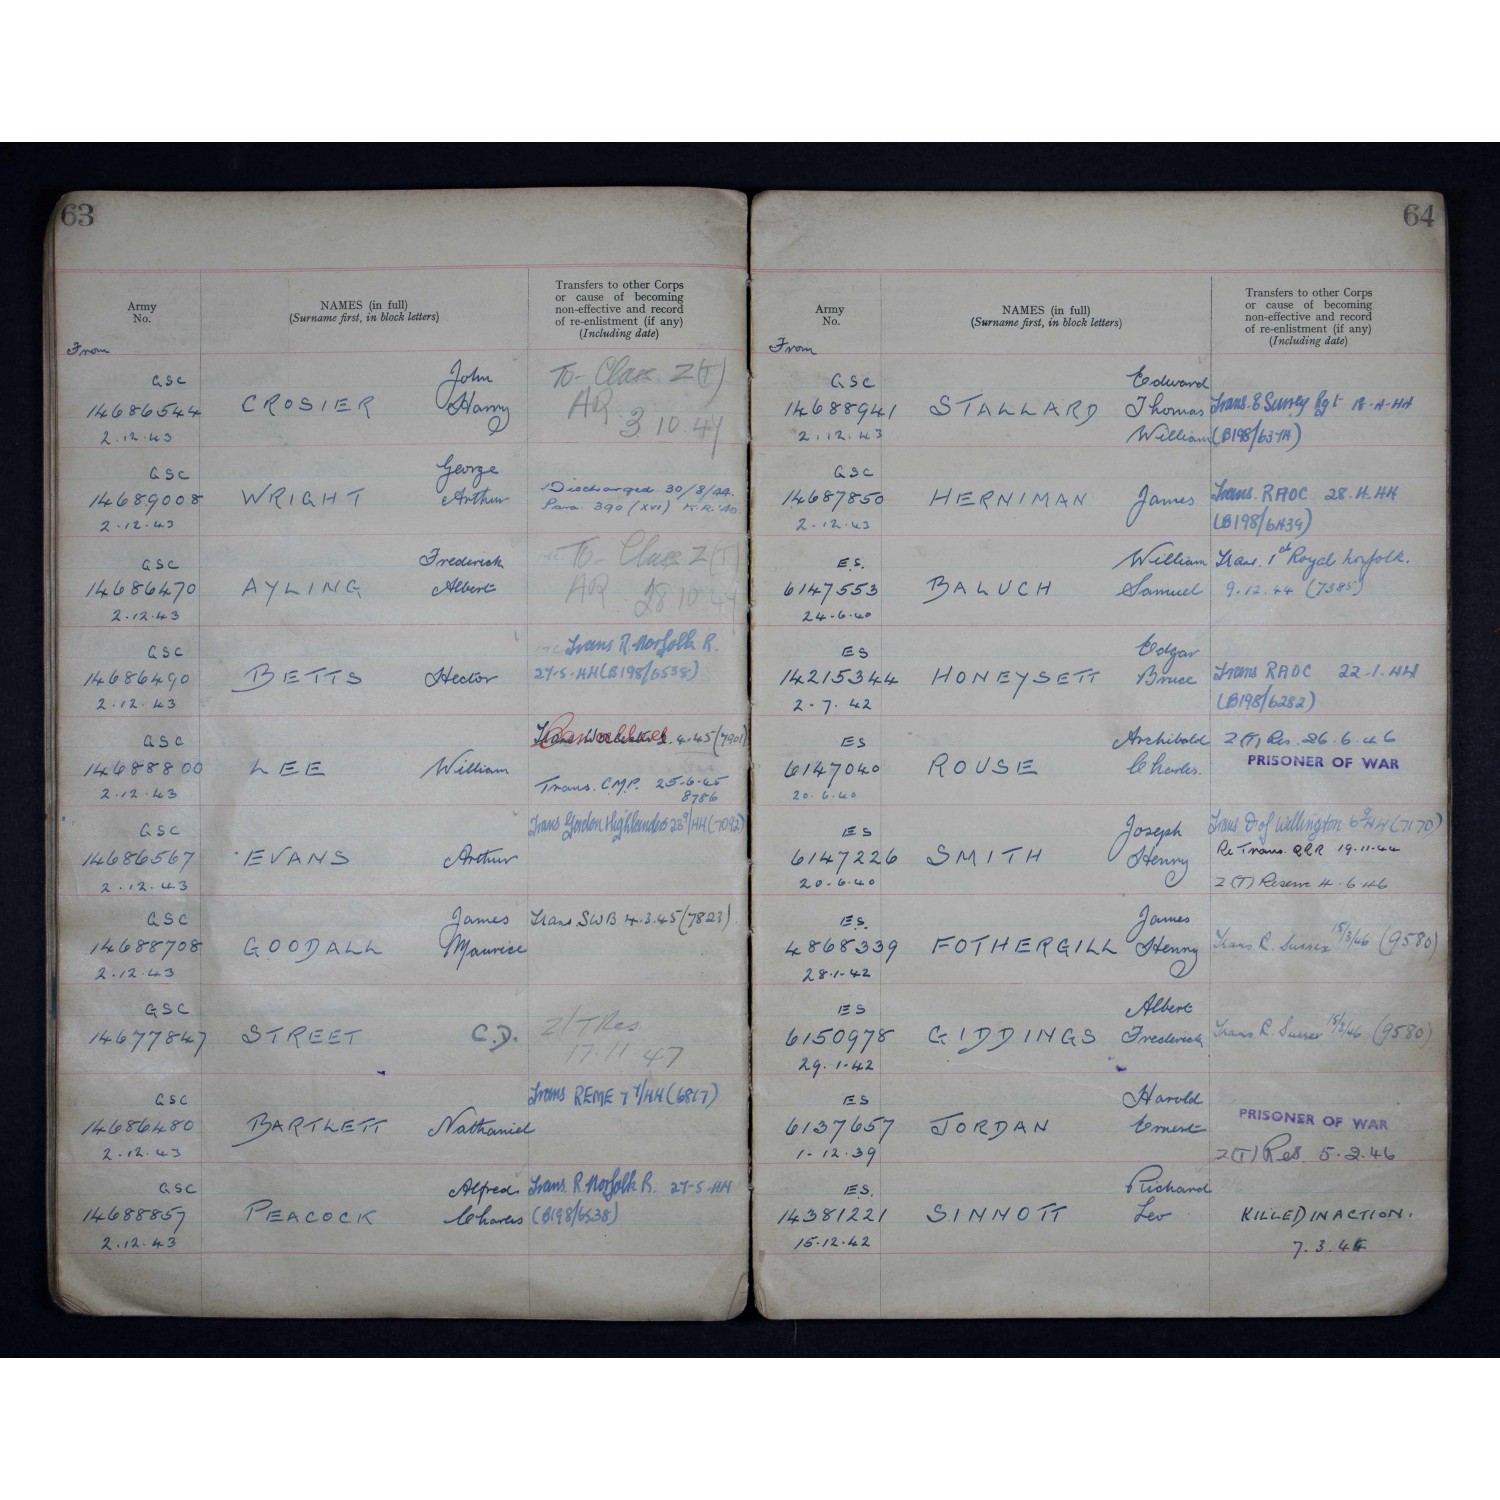 63
Army
No.
NAMES (in full)
(Surname first, in block letters)
Transfers to other Corps
or cause of becoming
non-effective and record
of re-enlistment (if any)
(Including date)
From
GSC
14686544
2.12.43
CROSIER
John
Harry
To Class Z(T)
AR
3 10.47
GSC
14689008
2.12.43
WRIGHT
George
Arthur
Discharged 30/8/44.
Para. 390 (XVI) K.R.'40.
GSC
14686470
2.12.43
AYLING
Frederick
Albert
To Class Z(T)
AR 28.10.47
GSC
14686490
2.12.43
BETTS
Hector
Trans R. Norfolk R.
27-5-44 (B198/6538)
GSC
14688800
2.12.43
LEE
William
Cancelled
4.45 (7901)
Trans. C.M.P. 25.6.45
8786
GSC
14686567
2.12.43
EVANS
Arthur
Trans Gordon Highlanders 23 9/44 (7092)
GSC
14688708
2.12.43
GOODALL
James
Maurice
Trans SWB 4.3.45 (7823).
GSC
14677847
STREET
C.D.
Z/T Res.
17.11 47
GSC
14686480
2.12.43
BARTLETT
Nathaniel
Trans REME 7 7/44 (6817)
GSC
14688857
2.12.43
PEACOCK
Alfred
Charles
Trans. R. Norfolk R. 27-5-44
(B198/6538)
64
Army
No.
NAMES (in full)
(Surname first, in block letters)
Transfers to other Corps
or cause of becoming
non-effective and record
of re-enlistment (if any)
(Including date)
From
GSC
14688941
2.12.43
STALLARD
Edward
Thomas
William
Trans. E Surrey Rgt 18-4-44
(B198/6374)
GSC
14687850
2.12.43
HERNIMAN
James
Trans. RAOC 28.4.44
(B198/6439)
E.S.
6147553
24.6.40
BALUCH
William
Samuel
Trans. 1st Royal Norfolk.
9.12.44 (7385)
ES
14215344
2.7.42
HONEYSETT
Edgar
Bruce
Trans RAOC 22-1-44
(B198/6282)
ES
6147040
20.6.40
ROUSE
Archibald
Charles.
Z(T) Res. 26.6.46
PRISONER OF WAR
ES
6147226
20.6.40
SMITH
Joseph
Henry
Trans. D of Wellington 6 9/44 (7170)
Re Trans. QRR 19.11.44
Z(T) Reserve 4.6.46
E.S.
4868339
28.1.42
FOTHERGILL
James
Henry
Trans R. Sussex 15/3/46 (9580)
ES
6150978
29.1.42
GIDDINGS
Albert
Frederick
Trans R. Sussex 15/3/46 (9580)
ES
6137657
1.12.39
JORDAN
Harold
Ernest
PRISONER OF WAR
Z(T) Res. 5.2.46
E.S.
14381221
15.12.42
SINNOTT
Richard
Leo
KILLED IN ACTION.
7.3.44